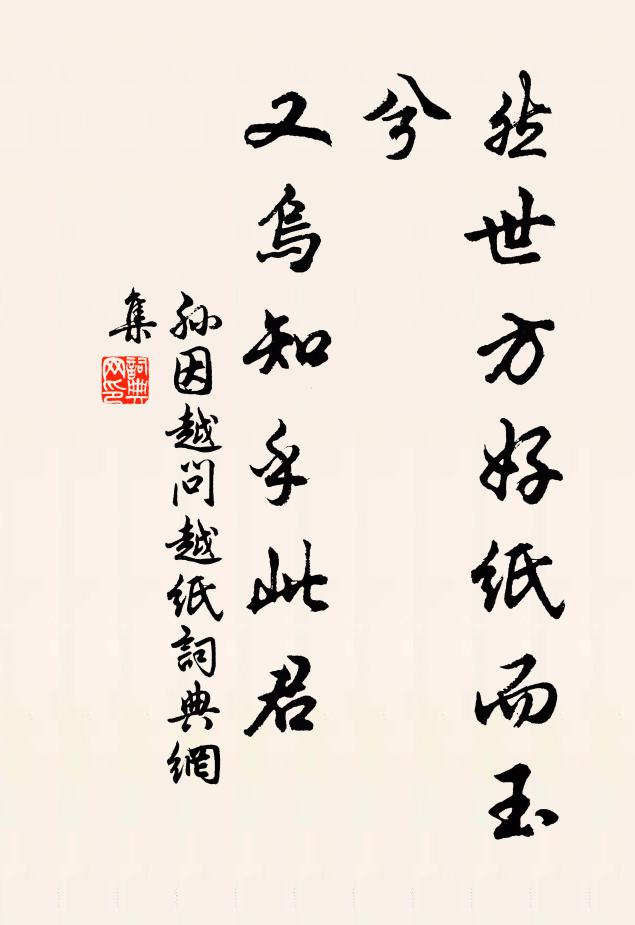 然世方好纸而玉
兮
又烏知乎此君
孙因越问越紙詞典網
集
詞典
网印